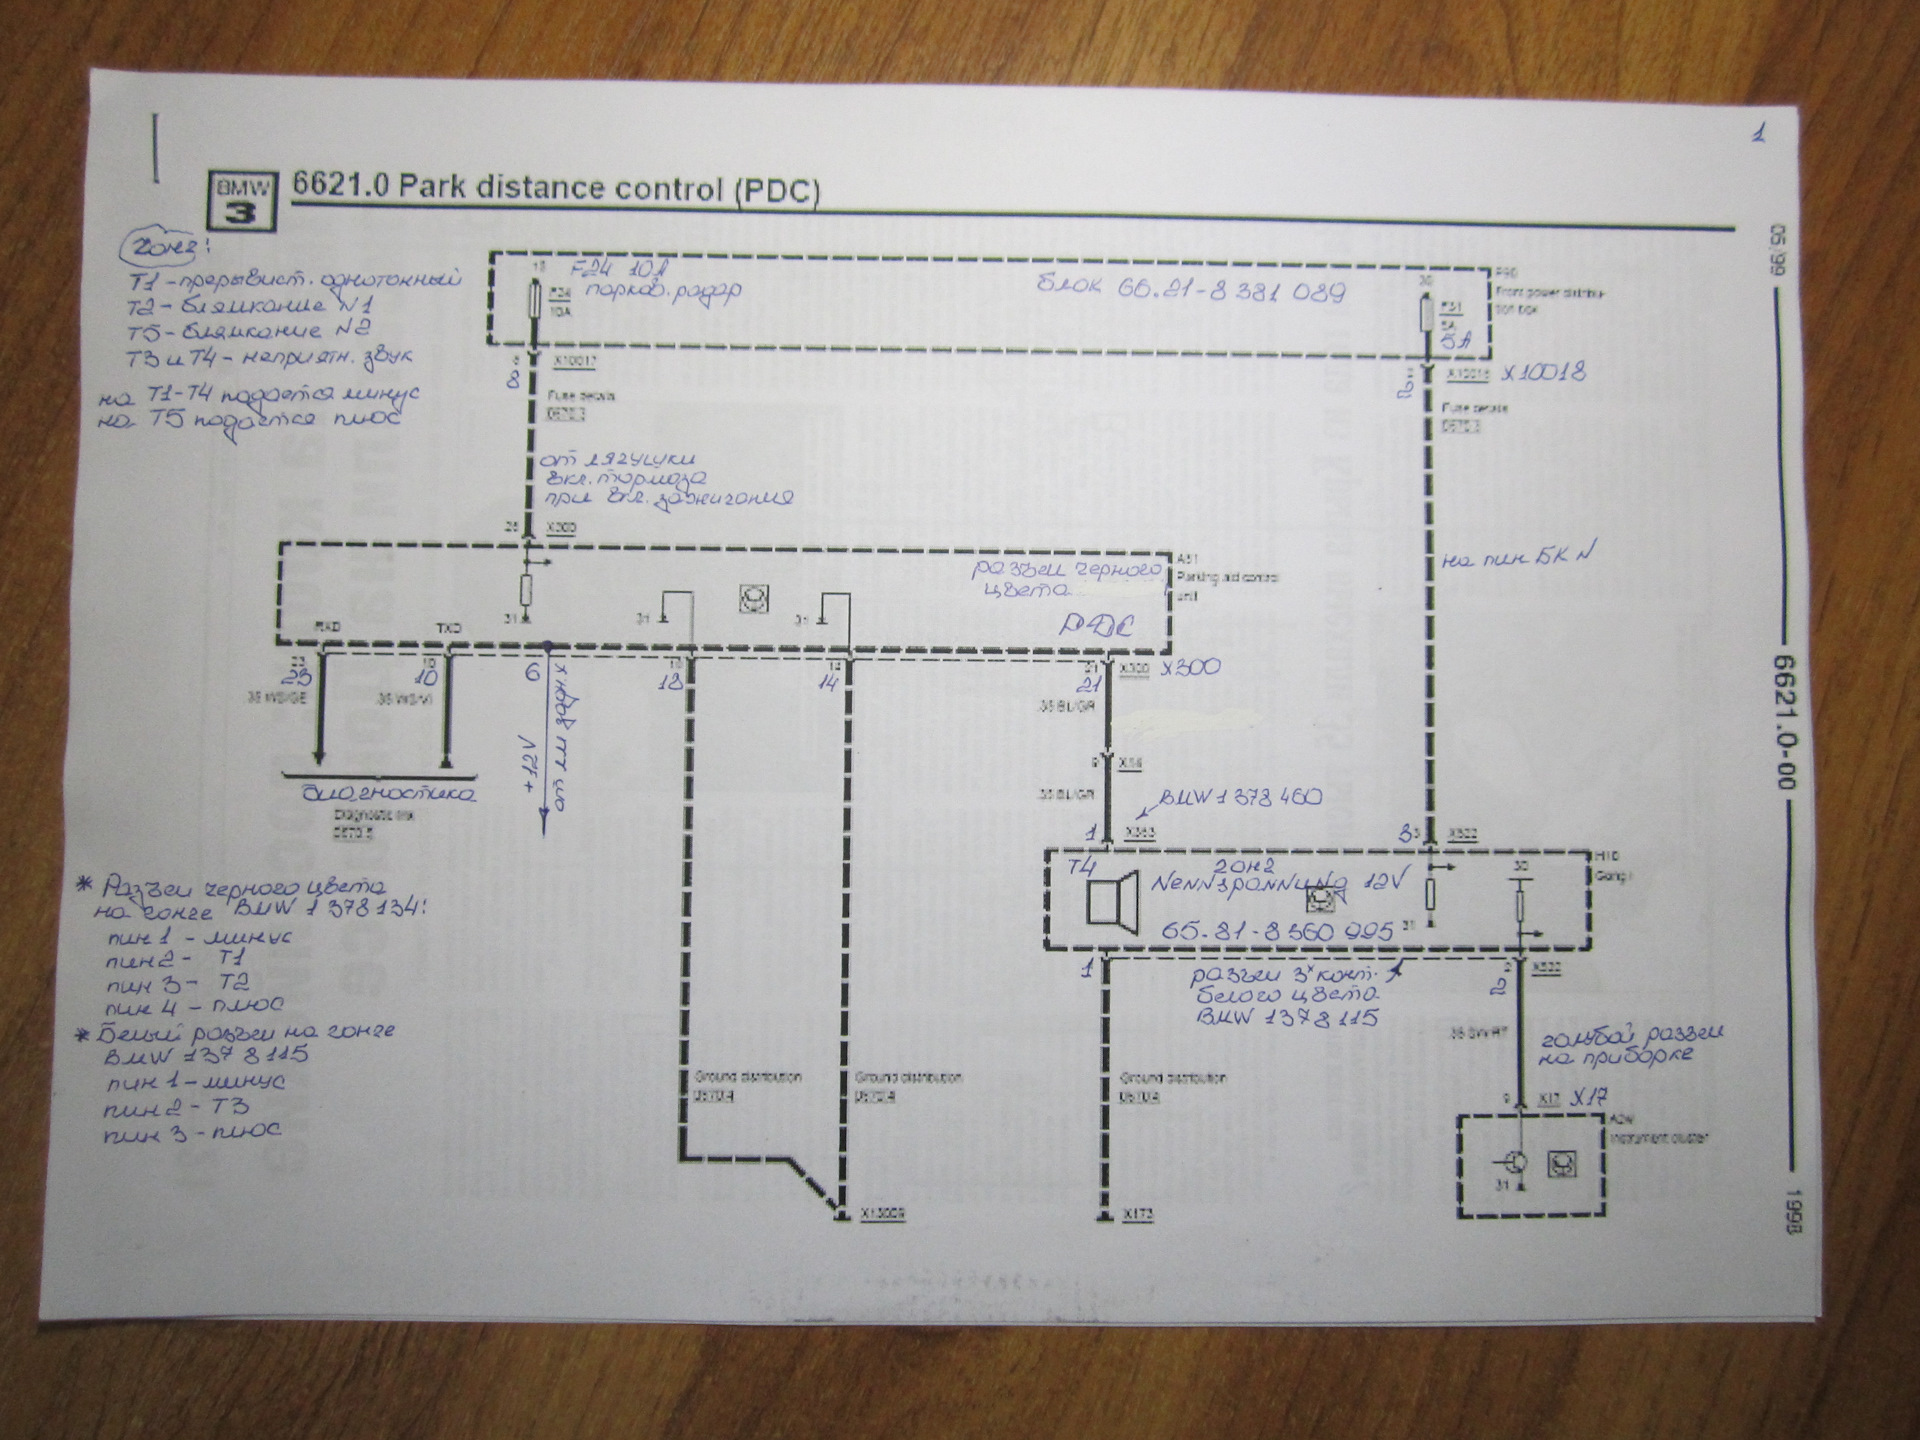 1
BMW
3
6621.0 Park distance control (PDC)
гонг:
Т1 - прерывист. однотонный
Т2 - блямкание N1
Т5 - блямкание N2
Т3 и Т4 - неприятн. звук
на Т1-Т4 подается минус
на Т5 подается плюс
15
F24 10A
парков. радар
F24
10A
блок 66.21-8 381 089
30
F31
5A
5A
P90
Front power distribu-
tion box
8
X10017
8
X10018
X10018
2
Fuse details
0670.3
Fuse details
0670.3
от лягушки
вкл. тормоза
при вкл. зажигания
на пин БК N
25
X300
A81
Parking aid control
unit
разъем черного
цвета
PDC
31
31
31
RXD
TXD
23
10
6
18
14
21
X300
X300
23
10
18
14
21
.35 WS/GE
.35 WS/VI
.35 BL/GR
+12V
диагностика
Diagnostic link
0670.5
9
X16
.35 BL/GR
BMW 1 378 460
1
X363
3
X522
T4
гонг
Nennspannung 12V
65.81-8 360 995
31
30
H10
Gong
1
разъем 3х конт.
белого цвета
BMW 1378 115
2
X522
2
* Разъем черного цвета
на гонге BMW 1 378 134:
пин 1 - минус
пин 2 - Т1
пин 3 - Т2
пин 4 - плюс
* Белый разъем на гонге
BMW 1378 115
пин 1 - минус
пин 2 - Т3
пин 3 - плюс
.35 SW/RT
голубой разъем
на приборке
Ground distribution
0670.4
Ground distribution
0670.4
Ground distribution
0670.4
9
X17
X17
A2w
Instrument cluster
31
X13009
X173
05.99
6621.0-00
1998